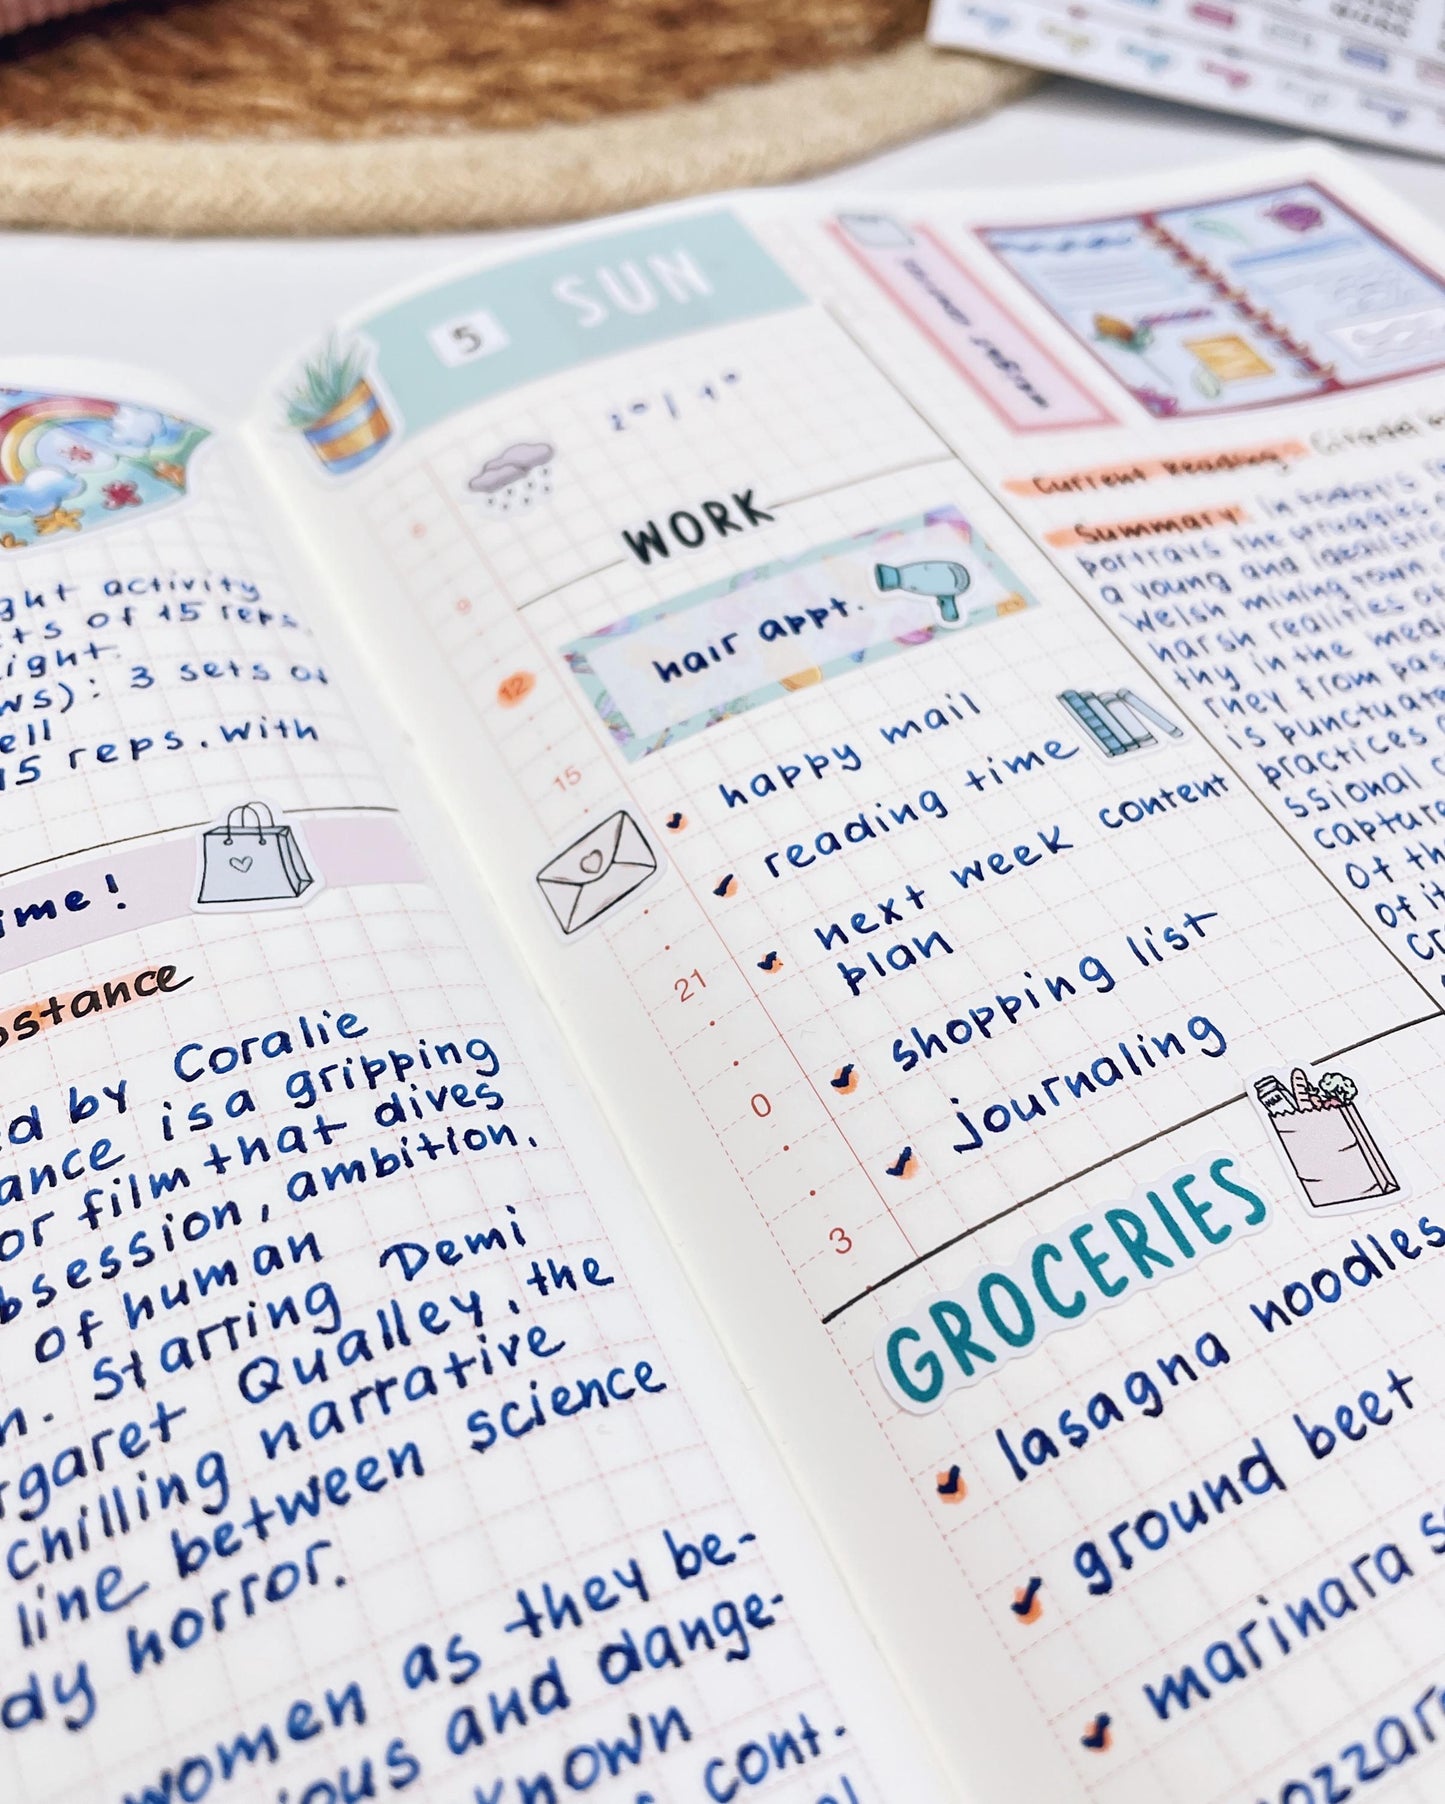 ght activity
ts of 15 reps.
ight.
ws): 3 sets of
ell
15 reps. with
ime!
bstance
ed by Coralie
ance is a gripping
or film that dives
bsession, ambition,
of human
n. Starring Demi
rgaret Qualley, the
chilling narrative
line between science
dy horror.
women as they be-
ious and dange-
known
cont.
5 SUN
WORK
hair appt.
12
15
21
0
3
happy mail
reading time
next week content
plan
shopping list
journaling
GROCERIES
lasagna noodles
ground beet
marinara s
ozzar
Current Reading: Citadel
Summary: In today's
portrays the struggles
a young and idealistic
Welsh mining town.
harsh realities of
thy in the medi
rney from pas
is punctuate
practices
ssional
capture
of th
of it